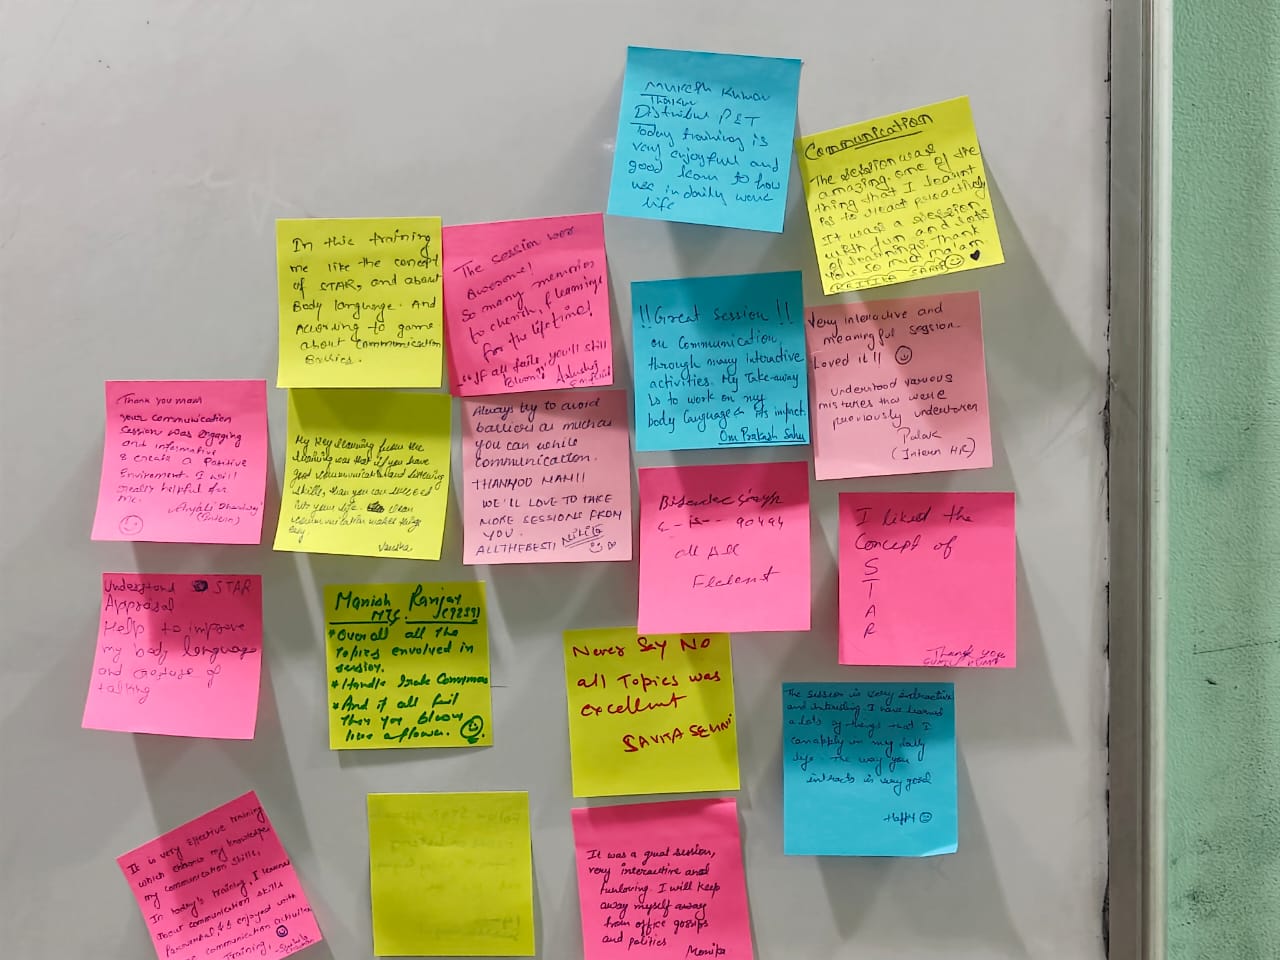 Mukesh Kumar
Thakur
Distribution PET
Today training is
very enjoyfull and
good learn to how
use in daily work
life
Communication
The session was
amazing. one of the
thing that I learnt
is to react proactively
It was a session
with fun and lots
of learnings. Thank
you so much ma'am
KRITIKA
In this training
me like the concept
of STAR, and about
Body language. And
According to game
about communication
The session was
Awesome!
So many memories
to cherish, & learnings
for the lifetime!
"If all fails, you'll still
bloom"
!! Great Session !!
on Communication,
through many interactive
activities. My Take-away
is to work on my
body language & its impact.
Om Prakash Sahu
Very interactive and
meaningful session.
Loved it!!
understood various
mistakes that were
previously undertaken
Palak
(Intern HR)
Thank you mam
your communication
Session was engaging
and informative
& create a Positive
Enviroment. I will
really helpful for
me
Anjali
(Intern)
My Key learning from the
training was that if you have
good communication and listening
skills than you can succeed
into your life. clean
communication makes things
easy.
Always try to avoid
barriers as much as
you can while
communication.
THANYOO MAM!!
WE'LL LOVE TO TAKE
MORE SESSIONS FROM
YOU.
ALL THE BEST! NIKITA
90444
all All
I liked the
Concept of
S
T
A
R
Thank you
Understand STAR
Appraisal
Help to improve
my body language
and gesture of
talking
Manish Ranjay
MTC
* Over all all the
Topics envolved in
session.
* Handle
* And if all fail
then you bloom
like a flower.
Never Say No
all Topics was
excellent
SAVITA
The session is very interactive
and interesting. I have learned
a lots of things that I
can apply in my daily
life. The way you
interacts is very good
It is very effective training
which enhance my knowledge
my communication skills,
In today's training, I learned
about communication skills
& enjoyed with
communication activities
training.
It was a great session,
very interactive and
funloving. I will keep
away myself away
from office gossips
and politics
Monika